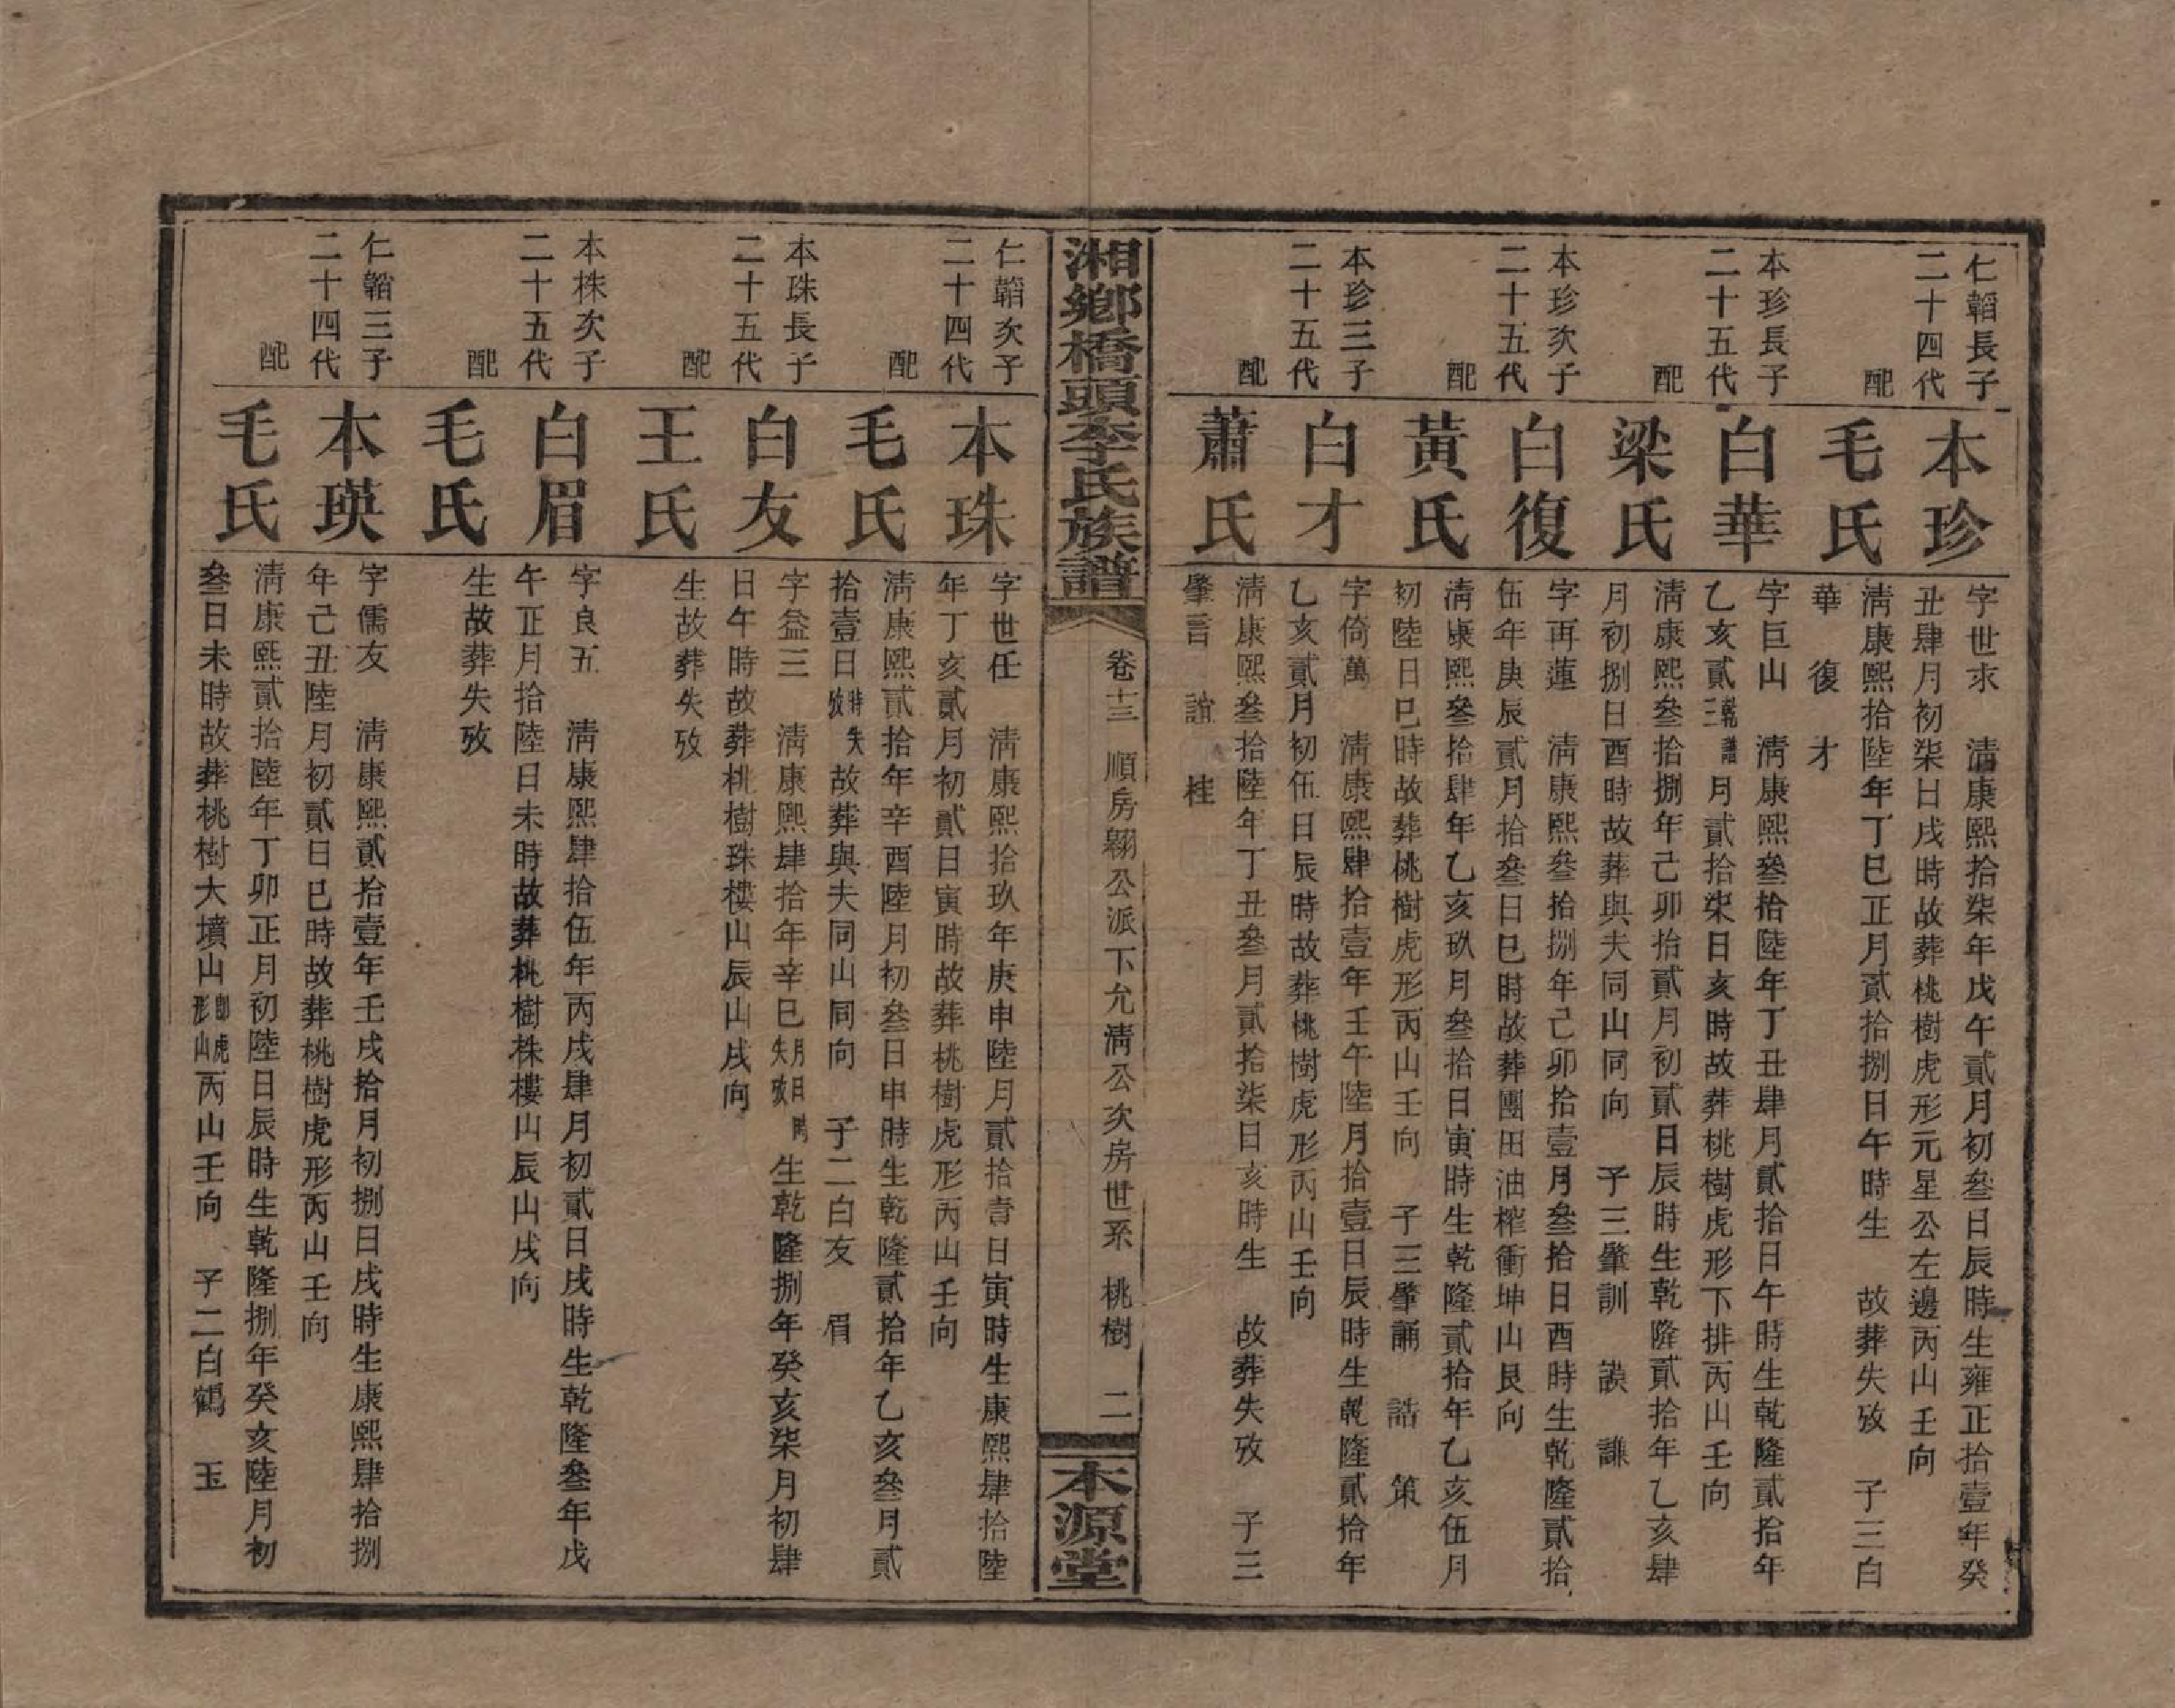 仁韜長子
二十四代
本珍
字世求　淸康熙拾柒年戊午貳月初叄日辰時生雍正拾壹年癸
丑肆月初柒日戌時故葬桃樹虎形元星公左邊丙山壬向
配
毛氏
淸康熙拾陸年丁巳正月貳拾捌日午時生　故葬失攷　子三白
華　復　才
本珍長子
二十五代
白華
字巨山　淸康熙叄拾陸年丁丑肆月貳拾日午時生乾隆貳拾年
乙亥貳乾譜三月貳拾柒日亥時故葬桃樹虎形下排丙山壬向
配
梁氏
淸康熙叄拾捌年己卯拾貳月初貳日辰時生乾隆貳拾年乙亥肆
月初捌日酉時故葬與夫同山同向　子三肇訓　謨　謙
本珍次子
二十五代
白復
字再蓮　淸康熙叄拾捌年己卯拾壹月叄拾日酉時生乾隆貳拾
伍年庚辰貳月拾叄日巳時故葬團田油榨衝坤山艮向
配
黃氏
淸康熙叄拾肆年乙亥玖月叄拾日寅時生乾隆貳拾年乙亥伍月
初陸日巳時故葬桃樹虎形丙山壬向　子三肇誦　誥　策
本珍三子
二十五代
白才
字倚萬　淸康熙肆拾壹年壬午陸月拾壹日辰時生乾隆貳拾年
乙亥貳月初伍日辰時故葬桃樹虎形丙山壬向
配
蕭氏
淸康熙叄拾陸年丁丑叄月貳拾柒日亥時生　故葬失攷　子三
肇言　誼　桂
湘鄉橋頭李氏族譜
卷十三　順房翱公派下允淸公次房世系　桃樹　二
本源堂
仁韜次子
二十四代
本珠
字世任　淸康熙拾玖年庚申陸月貳拾壹日寅時生康熙肆拾陸
年丁亥貳月初貳日寅時故葬桃樹虎形丙山壬向
配
毛氏
淸康熙貳拾年辛酉陸月初叄日申時生乾隆貳拾年乙亥叄月貳
拾壹日時失攷故葬與夫同山同向　子二白友　眉
本珠長子
二十五代
白友
字益三　淸康熙肆拾年辛巳月日時失攷生乾隆捌年癸亥柒月初肆
日午時故葬桃樹珠樓山辰山戌向
配
王氏
生故葬失攷
本株次子
二十五代
白眉
字良五　淸康熙肆拾伍年丙戌肆月初貳日戌時生乾隆叄年戊
午正月拾陸日未時故葬桃樹株樓山辰山戌向
配
毛氏
生故葬失攷
仁韜三子
二十四代
本瑛
字儒友　淸康熙貳拾壹年壬戌拾月初捌日戌時生康熙肆拾捌
年己丑陸月初貳日巳時故葬桃樹虎形丙山壬向
配
毛氏
淸康熙貳拾陸年丁卯正月初陸日辰時生乾隆捌年癸亥陸月初
叄日未時故葬桃樹大墳山卽虎形山丙山壬向　子二白鶴　玉